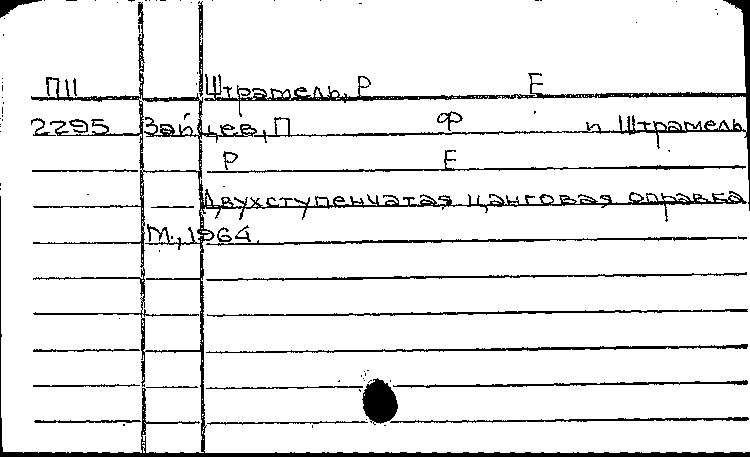 П11 Штрамель, Р Е
2295 Зайцев, П Ф и Штрамель,
Р Е
Двухступенчатая цанговая оправка
М., 1964.